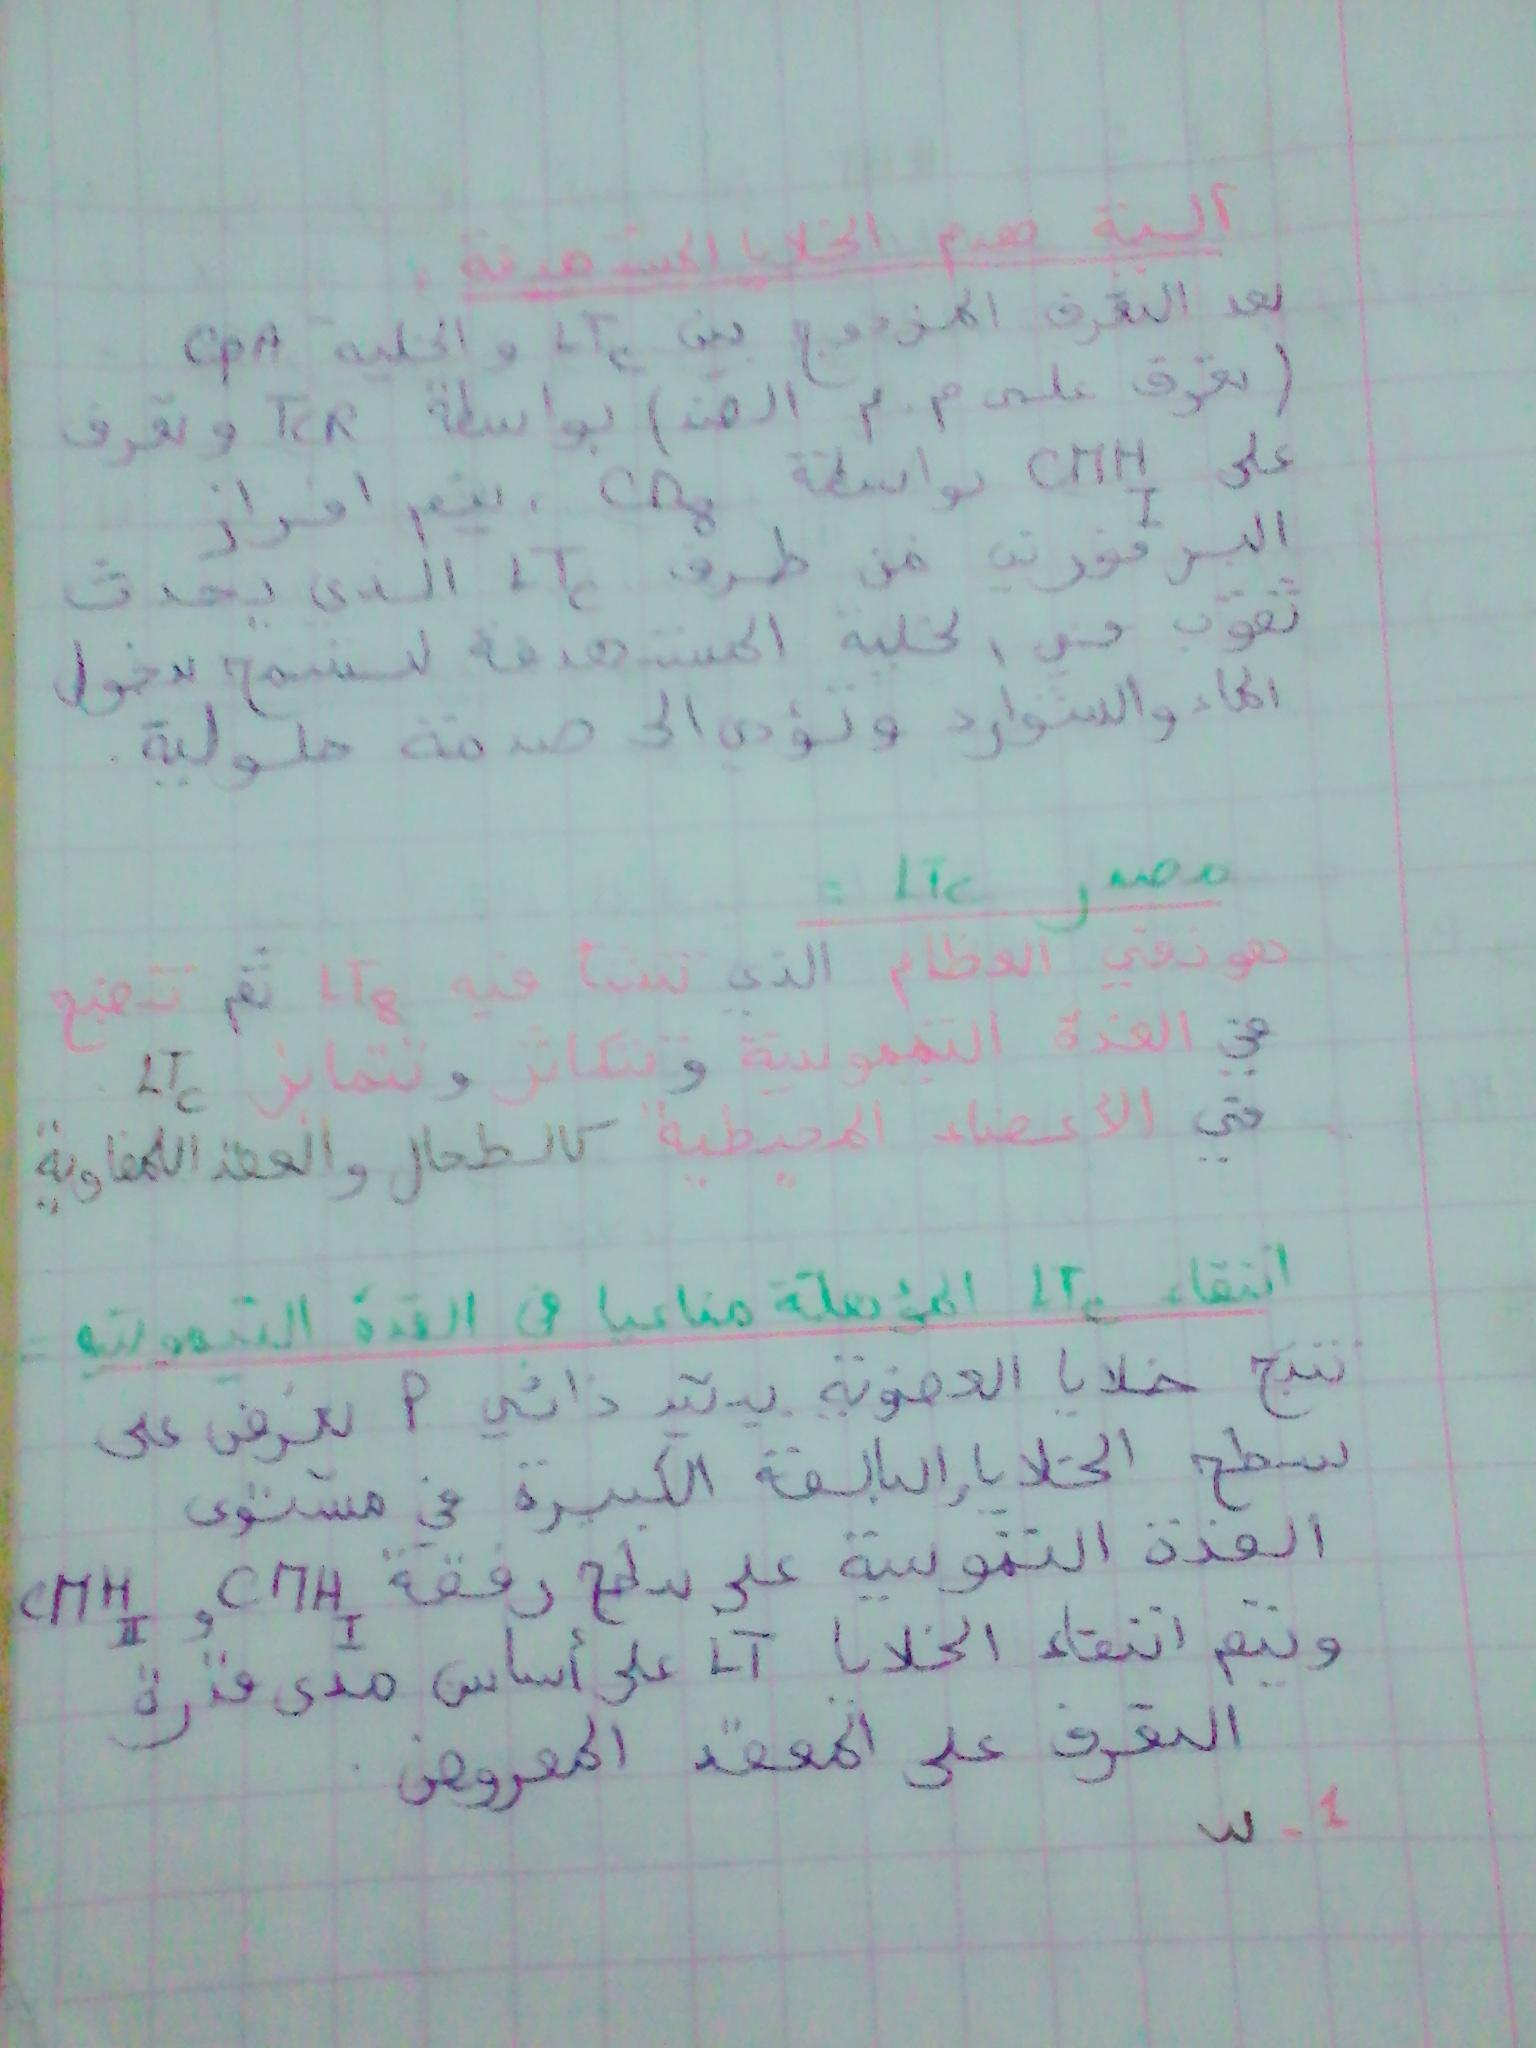 آلية هدم الخلايا المستهدفة :
بعد التعرف المزدوج بين LTc والخلية CPA
(تعرف على م.م الضد) بواسطة TCR وتعرف
على CMH I بواسطة CD8 ، يتم افراز
البرفورين من طرف LTc الذي يحدث
ثقوب في الخلية المستهدفة لتسمح بدخول
الماء والشوارد وتؤدي الى صدمة حلولية .
مصدر LTc =
هو نقي العظام الذي تنشأ فيه LT8 ثم تنضج
في الغدة التيموسية وتتكاثر وتتمايز LTc
في الأعضاء المحيطية كالطحال والعقد اللمفاوية
انتقاء LTc المؤهلة مناعيا في الغدة التيموسية =
تنتج خلايا العضوية ببتيد ذاتي P يعرض على
سطح الخلايا البالعة الكبيرة في مستوى
الغدة التيموسية على سطح رفقة CMH I و CMH II
ويتم انتقاء الخلايا LT على أساس مدى قدرة
التعرف على المعقد المعروض .
1 -